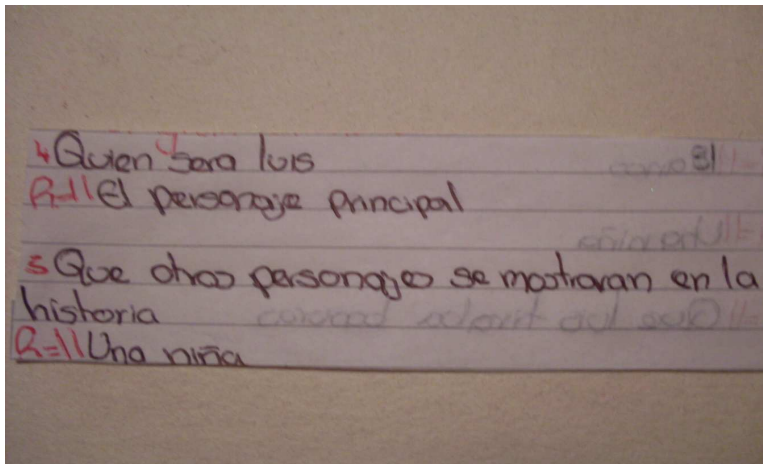 4 Quien sera luis
R=11 El personaje principal
5 Que otros personajes se mostraran en la
historia
R=11 Una niña